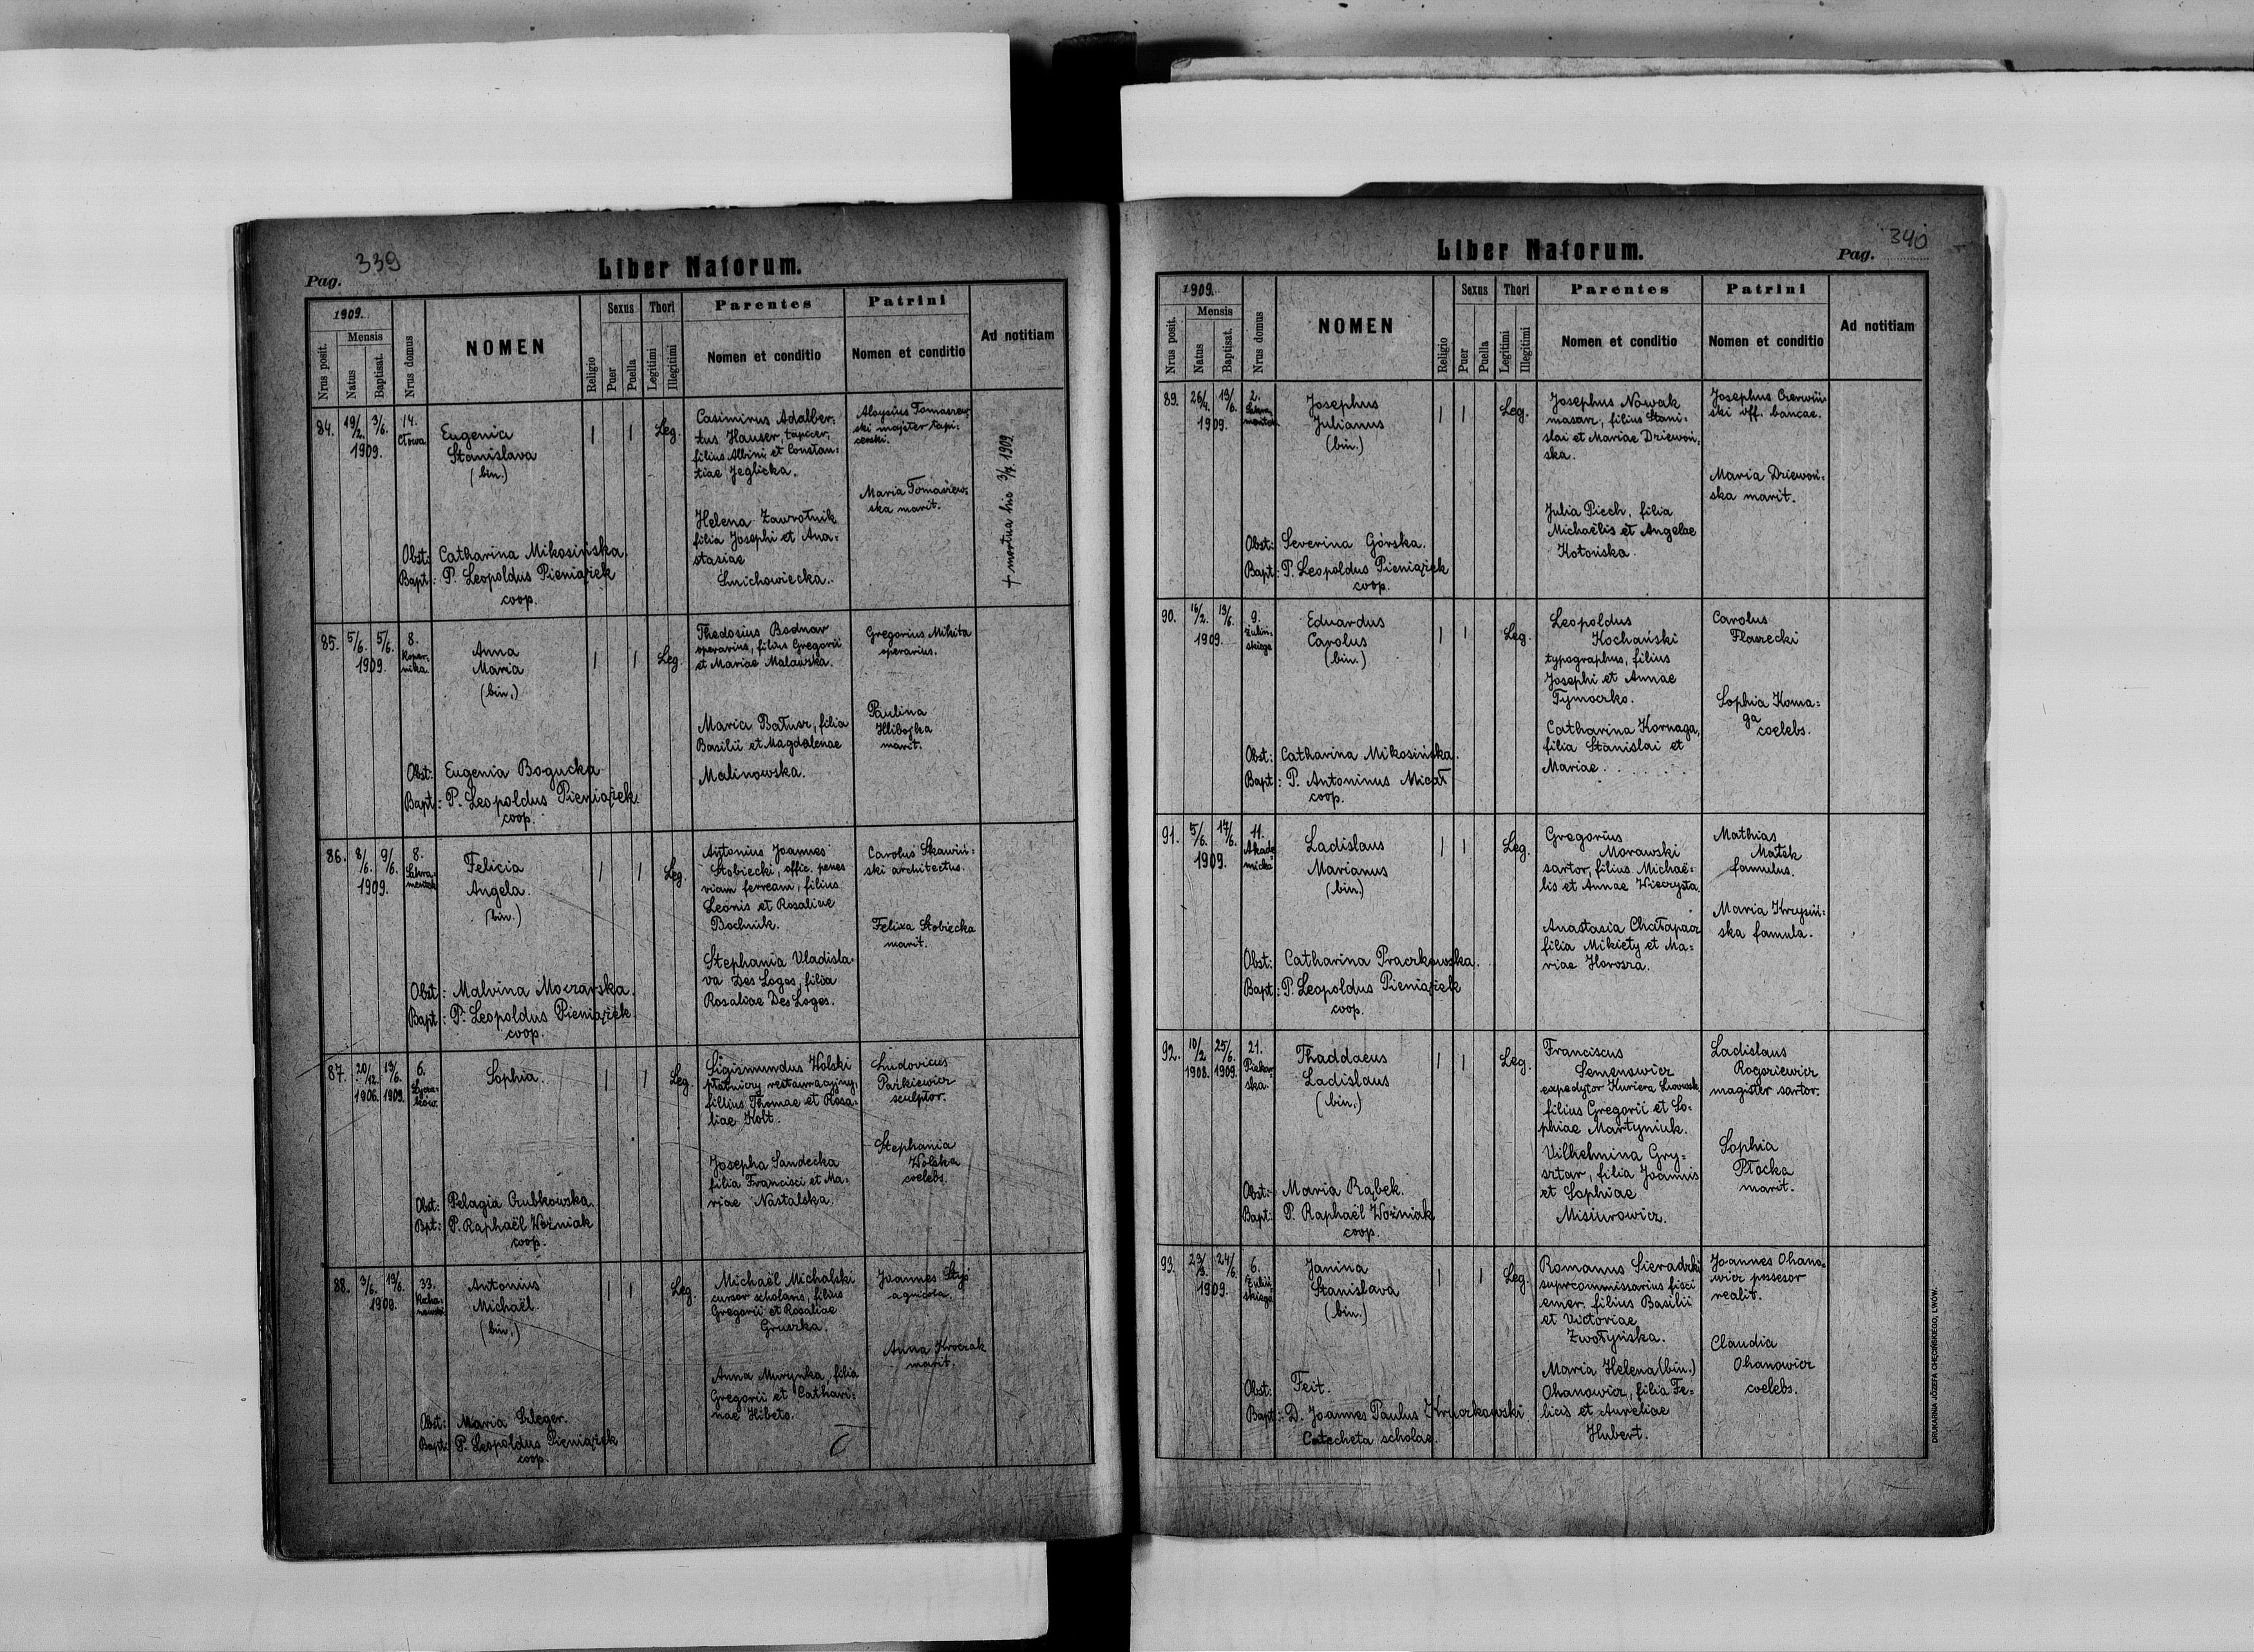 Pag. 339
Liber Natorum.
1909.
Nrus posit.
Mensis
Natus
Baptisat.
Nrus domus
NOMEN
Religio
Sexus
Puer
Puella
Thori
Legitimi
Illegitimi
Parentes
Nomen et conditio
Patrini
Nomen et conditio
Ad notitiam
84. 19/2. 3/6. 1909.
14.
Cłowa
Eugenia
Stanislava
(bin.)
Obst: Catharina Mikosińska.
Bapt: P. Leopoldus Pieniążek
coop.
Leg.
Casimirus Adalber-
tus Hauser, tapicer,
filius Albini et Constan-
tiae Jeglicka.
Helena Zawrotnik
filia Josephi et Ana-
stasiae
Smichowiecka.
Aloysius Tomaszew-
ski majster tapi-
cerski.
Maria Tomaszew-
ska marit.
+ mortua hic 3/7 1909
85. 5/6. 5/6. 1909.
8.
Koper-
nika.
Anna
Maria
(bin.)
Obst: Eugenia Bogucka
Bapt: P. Leopoldus Pieniążek.
coop.
Leg.
Thedosius Bodnar
operarius, filius Gregorii
et Mariae Malawska.
Maria Batusz, filia
Basilii et Magdalenae
Malinowska.
Gregorius Mikita
operarius.
Paulina
Hlibojka
marit.
86. 8/6. 9/6. 1909.
8.
Sakra-
mentek
Felicia
Angela.
(bin.)
Obst: Malvina Moczarska.
Bapt: P. Leopoldus Pieniążek.
coop.
Leg.
Antonius Joannes
Stobiecki, offic. penes
viam ferream, filius
Leonis et Rosaliae
Bochnik.
Stephania Vladisla-
va Des Loges, filia
Rosaliae Des Loges.
Carolus Skawiń-
ski architectus.
Felixa Stobiecka
marit.
87. 20/12. 1906. 13/6. 1909.
6.
Łycza-
ków.
Sophia.
Obst: Pelagia Czubkowska.
Bpt: P. Raphaël Woźniak
coop.
Leg.
Sigismundus Wolski
płatniczy restauracyjny,
filius Thomae et Rosa-
liae Kolt.
Josepha Sandecka
filia Francisci et Ma-
riae Nastalska.
Ludovicus
Paszkiewicz
sculptor.
Stephania
Wolska
coelebs.
88. 3/6. 13/6. 1909.
33.
Kocha-
nowski
Antonius
Michaël.
(bin.)
Obst: Maria Szleger.
Bapt: P. Leopoldus Pieniążek
coop.
Leg.
Michaël Michalski
cursor scholaris, filius
Gregorii et Rosaliae
Gruszka.
Anna Murynka, filia
Gregorii et Cathari-
nae Hibets.
Joannes Styś
agricola.
Anna Kroczak
marit.
Liber Natorum.
Pag. 340
1909.
Nrus posit.
Mensis
Natus
Baptisat.
Nrus domus
NOMEN
Religio
Sexus
Puer
Puella
Thori
Legitimi
Illegitimi
Parentes
Nomen et conditio
Patrini
Nomen et conditio
Ad notitiam
89. 26/4. 13/6. 1909.
2.
Sakra-
mentek
Josephus
Julianus
(bin.)
Obst: Severina Górska.
Bapt: P. Leopoldus Pieniążek
coop.
Leg.
Josephus Nowak
masarz, filius Stani-
slai et Mariae Dziewoń-
ska.
Julia Piech, filia
Michaëlis et Angelae
Kotońska.
Josephus Czerwiń-
ski off. bancae.
Maria Dziewoń-
ska marit.
90. 16/2. 13/6. 1909.
9.
Żuliń-
skiego
Eduardus
Carolus
(bin.)
Obst: Catharina Mikosińska.
Bapt: P. Antoninus Micał
coop.
Leg.
Leopoldus
Kochański
typographus, filius
Josephi et Annae
Tymoczko.
Catharina Kornaga,
filia Stanislai et
Mariae . . . . . .
Carolus
Flaszecki
Sophia Korna-
ga
coelebs.
91. 5/6. 17/6. 1909.
11.
Akade
micka
Ladislaus
Marianus
(bin.)
Obst: Catharina Praczkowska.
Bapt: P. Leopoldus Pieniążek
coop.
Leg.
Gregorius
Morawski
sartor, filius Michaë-
lis et Annae Wieczysta.
Anastasia Chałapacz
filia Mikiety et Ma-
riae Horosza.
Mathias
Matsk
famulus.
Maria Krzysiń-
ska famula.
92. 10/2 1908. 25/6. 1909.
21.
Piekar-
ska.
Thaddaeus
Ladislaus
(bin.)
Obst: Maria Rąbek.
Bapt: P. Raphaël Woźniak
coop.
Leg.
Franciscus
Semenowicz
expedytor Kuriera Lwowsk.
filius Gregorii et So-
phiae Martyniuk.
Vilhelmina Gry-
sztar, filia Joannis
et Sophiae
Misiurowicz.
Ladislaus
Rogoziewicz
magister sartor.
Sophia
Płocka
marit.
93. 23/3. 24/6. 1909.
6.
Żuliń
skiego
Janina
Stanislava
(bin.)
Obst: Feit.
Bapt: D. Joannes Paulus Kruczkowski
Catecheta scholae.
Leg.
Romanus Sieradzki
suprcommissarius fisci
emer. filius Basilii
et Victoriae
Zwołyńska.
Maria Helena (bin.)
Ohanowicz, filia Fe-
licis et Aureliae
Hubert.
Joannes Ohano-
wicz possesor
realit.
Claudia
Ohanowicz
coelebs.
DRUKARNIA JÓZEFA CHĘCIŃSKIEGO, LWÓW.